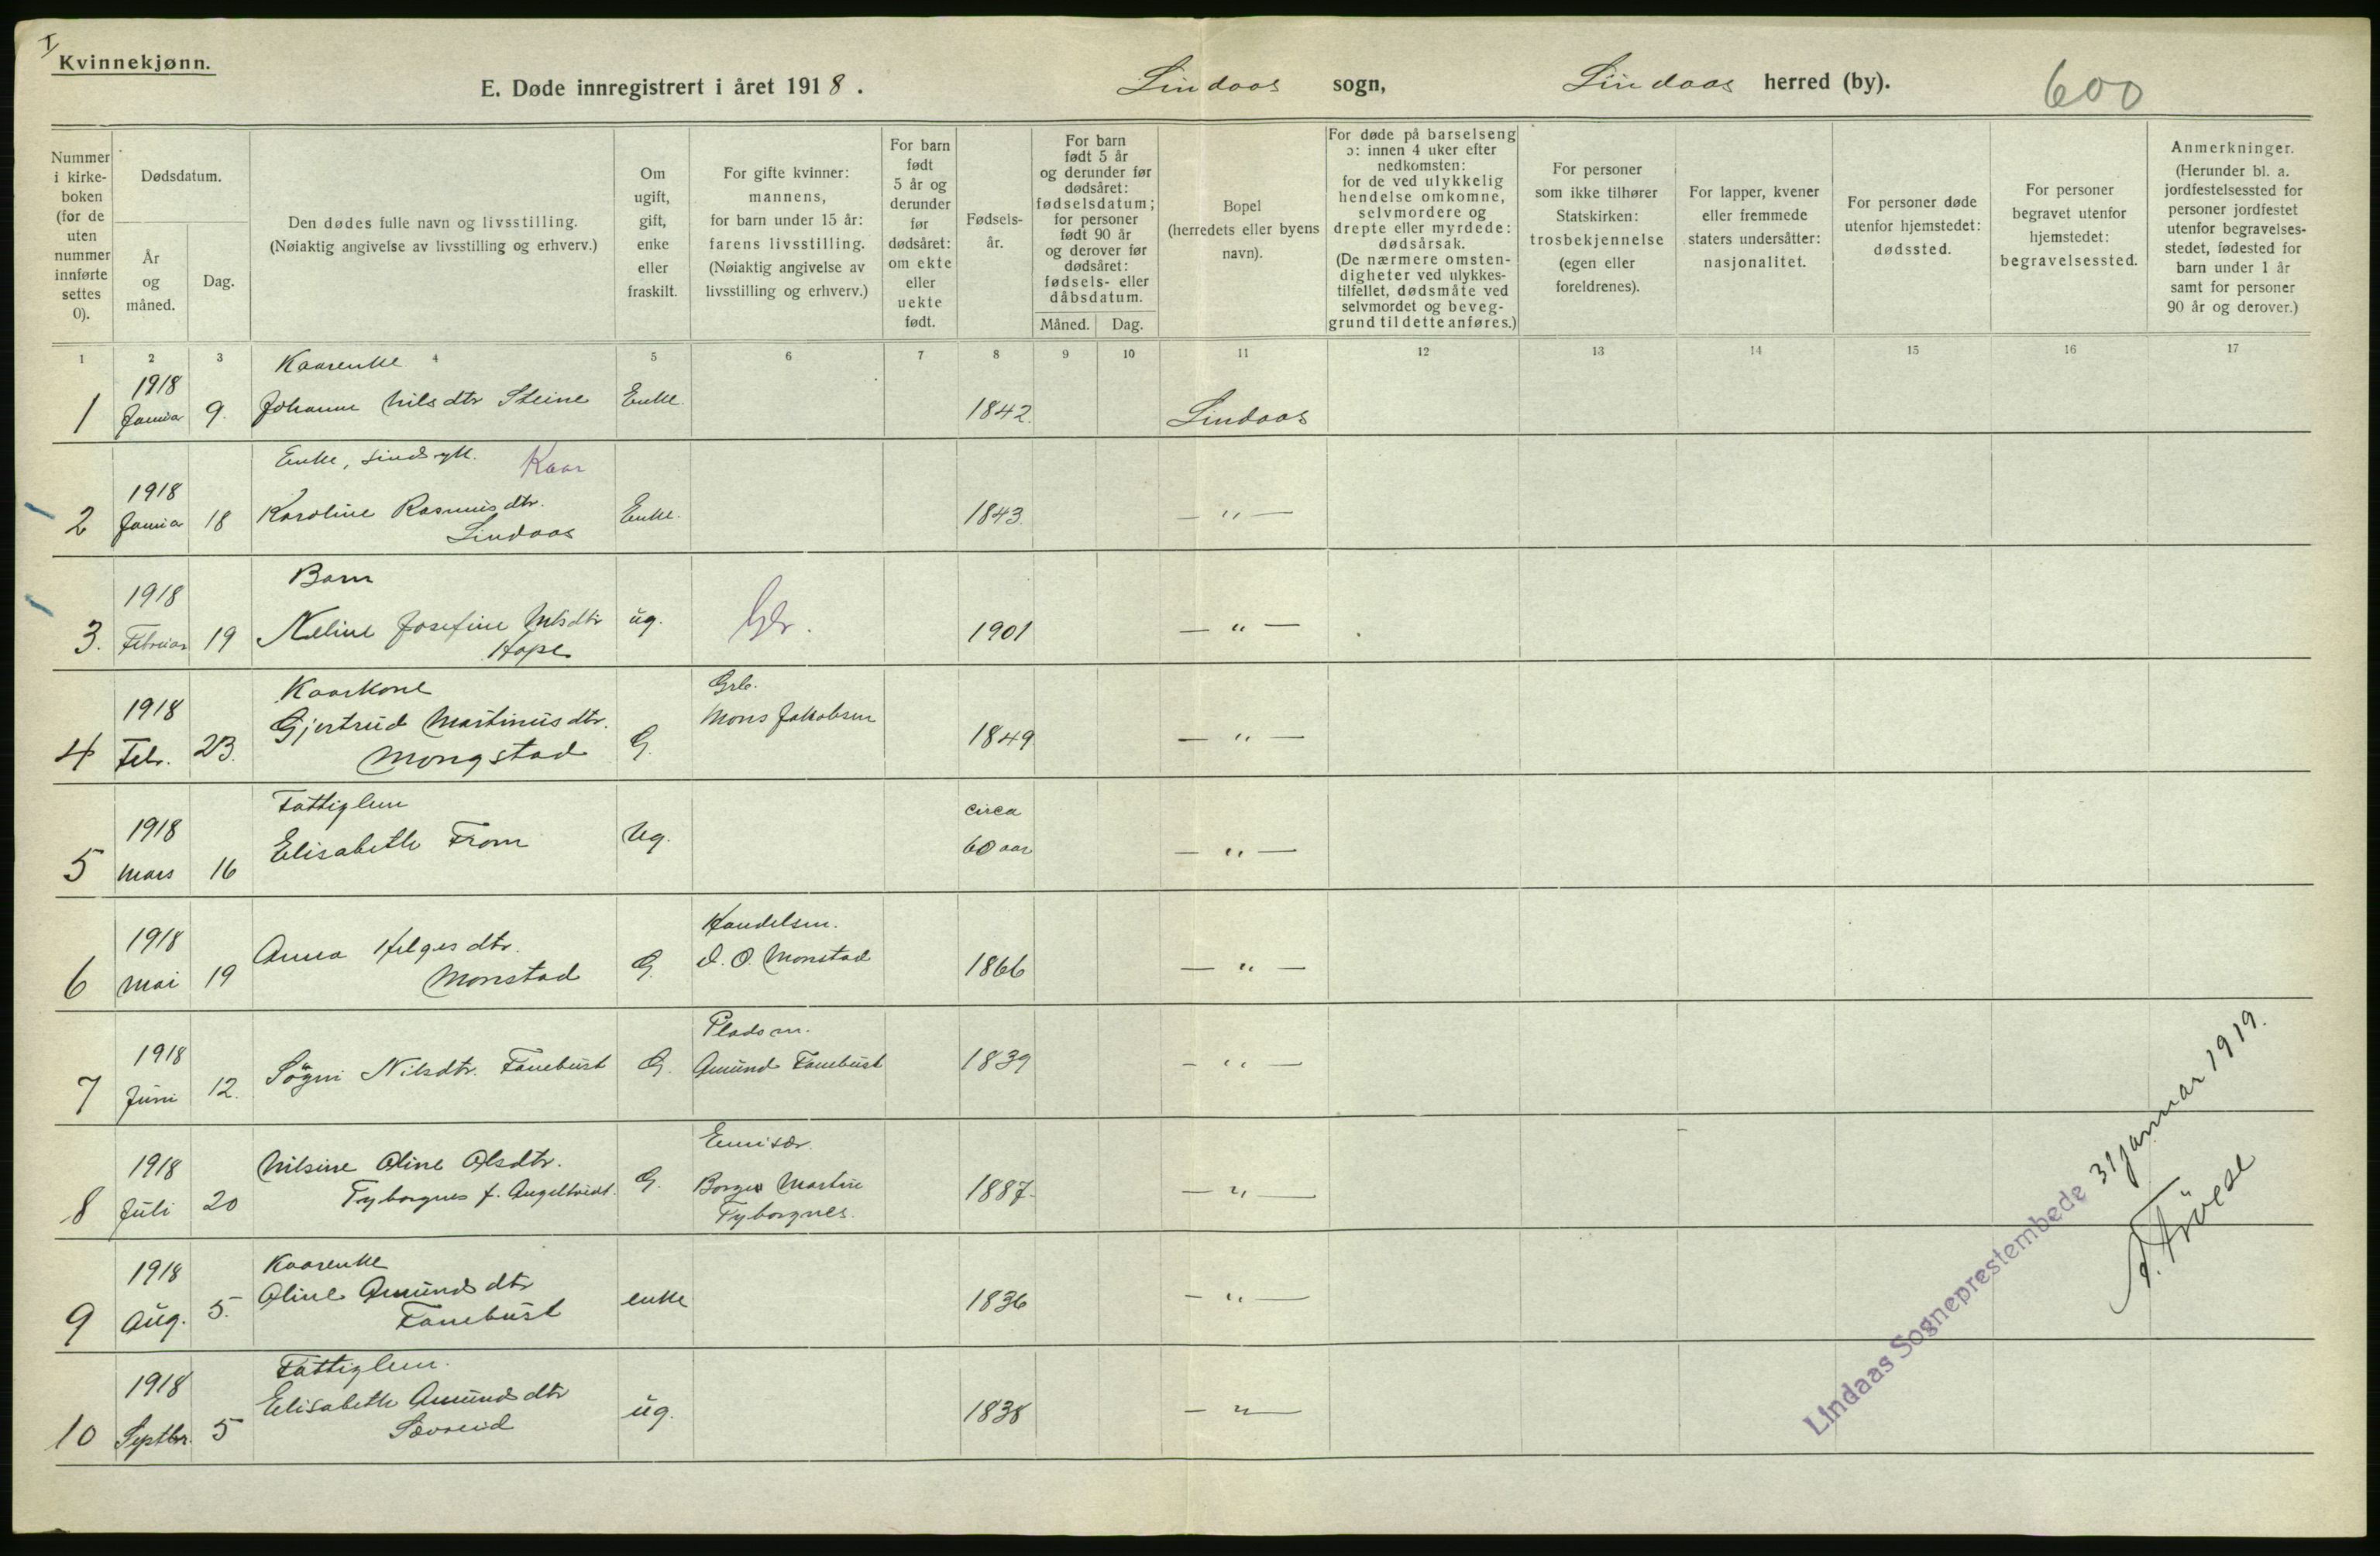 I
Kvinnekjønn.
E. Døde innregistrert i året 1918. Lindaas sogn, Lindaas herred (by). 600
Nummer i kirke-boken (for de uten nummer innførte settes 0).
Dødsdatum.
År og måned.
Dag.
Den dødes fulle navn og livsstilling.
(Nøiaktig angivelse av livsstilling og erhverv.)
Om ugift, gift, enke eller fraskilt.
For gifte kvinner: mannens, for barn under 15 år: farens livsstilling. (Nøiaktig angivelse av livsstilling og erhverv.)
For barn født 5 år og derunder før dødsåret: om ekte eller uekte født.
Fødsels-år.
For barn født 5 år og derunder før dødsåret: fødselsdatum; for personer født 90 år og derover før dødsåret: fødsels- eller dåbsdatum.
Måned. Dag.
Bopel (herredets eller byens navn).
For døde på barselseng ɔ: innen 4 uker efter nedkomsten: for de ved ulykkelig hendelse omkomne, selvmordere og drepte eller myrdede: dødsårsak. (De nærmere omsten-digheter ved ulykkes-tilfellet, dødsmåte ved selvmordet og beveg-grund til dette anføres.)
For personer som ikke tilhører Statskirken: trosbekjennelse (egen eller foreldrenes).
For lapper, kvener eller fremmede staters undersåtter: nasjonalitet.
For personer døde utenfor hjemstedet: dødssted.
For personer begravet utenfor hjemstedet: begravelsessted.
Anmerkninger. (Herunder bl. a. jordfestelsessted for personer jordfestet utenfor begravelses-stedet, fødested for barn under 1 år samt for personer 90 år og derover.)
1 2 3 4 5 6 7 8 9 10 11 12 13 14 15 16 17
Kaarenke
1918
1 Janua 9. Johanne Nilsdtr Steine Enke. 1842. Lindaas
Enke, sindsyk. Kaar
1918
2 Janua 18 Karoline Rasmusdtr. Enke. 1843. — " —
Lindaas
Barn
1918
3. Februar 19 Neline Josefine Nilsdtr ug. 1901 — " —
Hope
Kaarkone Grb.
1918 Gjertrud Martinusdtr. Mons Jakobsen
4 Febr. 23. Mongstad G. 1849 — " —
Fattiglem circa
1918 Elisabeth From Ug. 60 aar
5 Mars 16 — " —
1918 Handelsm.
Anna Helgesdtr. O. Monstad
6 Mai 19 Monstad G. 1866 — " —
Pladsm.
1918 Søgni Nilsdtr. Fanebust G. Amund Fanebust 1839 — " —
7 Juni 12.
Emisær.
1918 Nilsine Oline Olsdtr. G. Martin 1887. — " —
8 Juli 20 Fyborgnes f. Fyborgnes.
Kaarenke
1918 Oline Amundsdtr
9 Aug. 5. Fanebust enke 1836 — " —
Fattiglem.
1918 Elisabeth Amundsdtr
10 Septbr. 5 Sævreid ug. 1838 — " —
Lindaas Sogneprestembede 31 januar 1919.